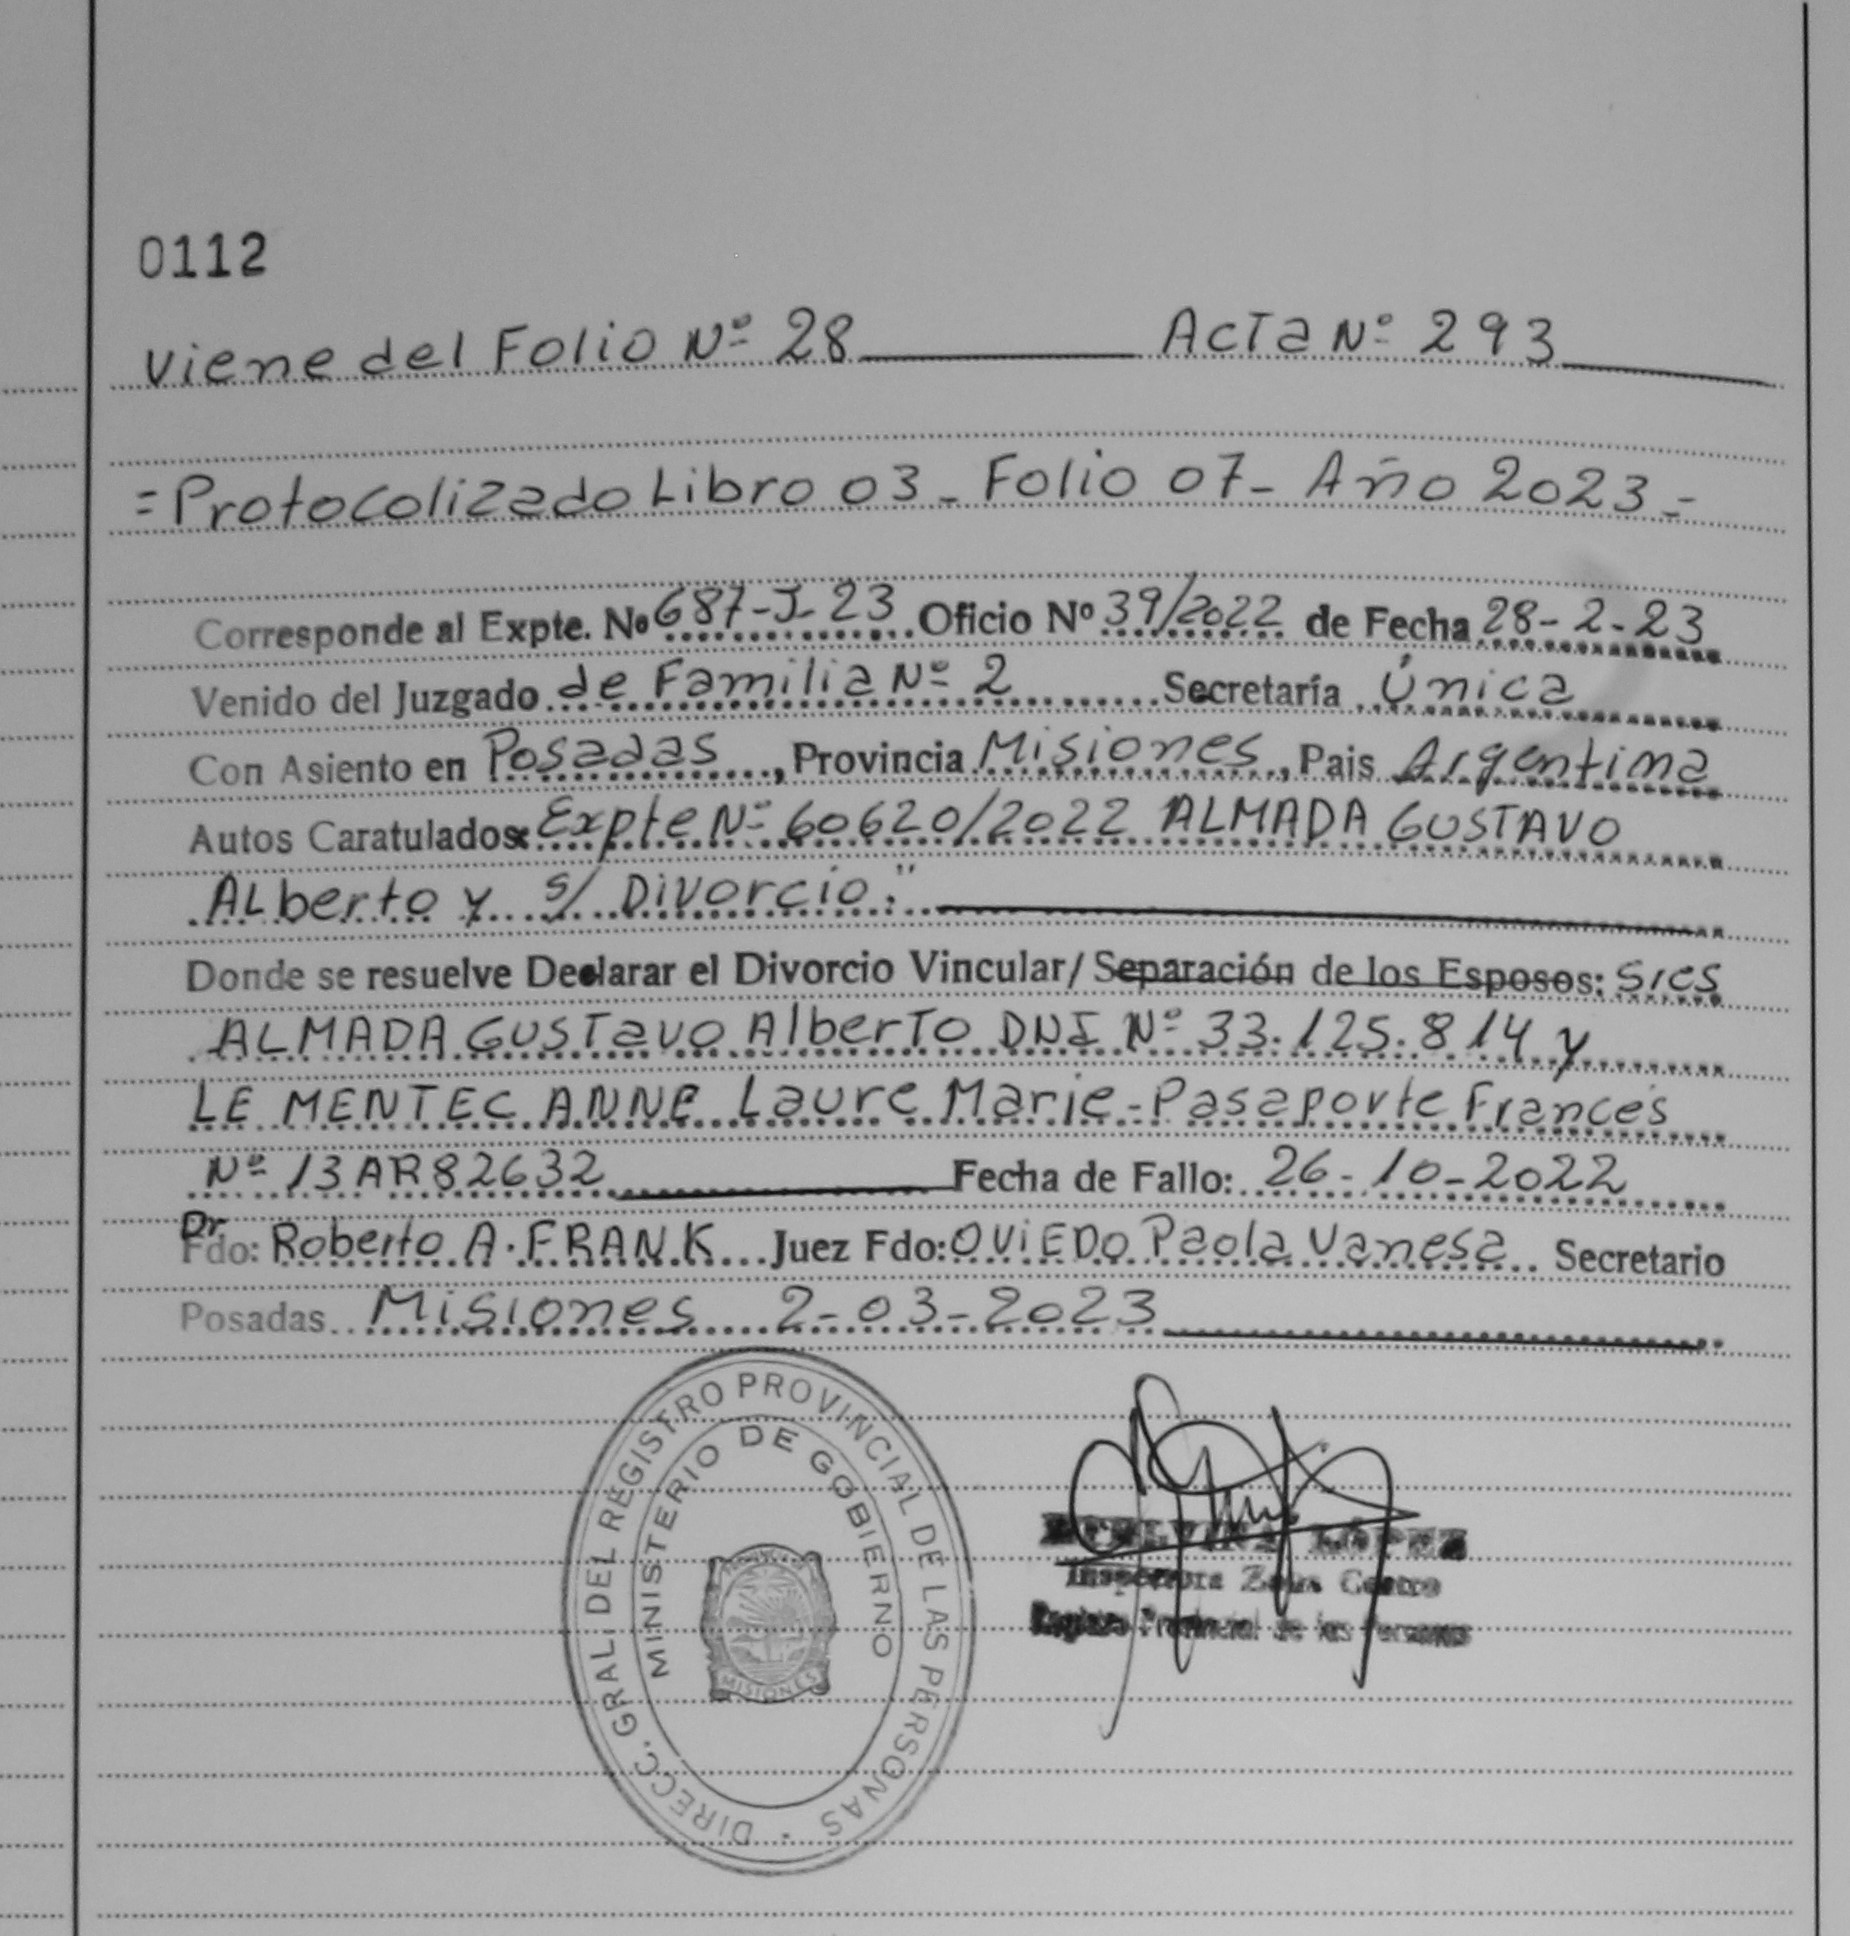 0112
Viene del Folio Nº 28 Acta Nº 293
=Protocolizado Libro 03- Folio 07- Año 2023-
Corresponde al Expte. Nº 687-J-23 Oficio Nº 39/2022 de Fecha 28-2-23
Venido del Juzgado de Familia Nº 2 Secretaría Única
Con Asiento en Posadas, Provincia Misiones, Pais Argentina
Autos Caratulados: Expte Nº 60620/2022 ALMADA GUSTAVO
ALberto y s/ Divorcio."
Donde se resuelve Declarar el Divorcio Vincular/ Separación de los Esposos:
ALMADA GUSTavo AlberTo DNI Nº 33.125.814 y
LE MENTEC ANNE Laure Marie-Pasaporte Francés
Nº 13AR82632 Fecha de Fallo: 26-10-2022
Dr
Fdo: Roberto A. FRANK Juez Fdo: OVIEDO Paola Vanesa Secretario
Posadas Misiones 2-03-2023
DIRECC. GRAL. DEL REGISTRO PROVINCIAL DE LAS PERSONAS
MINISTERIO DE GOBIERNO
MISIONES
LÓPEZ
Inspectora Zona Centro
Registro Provincial de las Personas